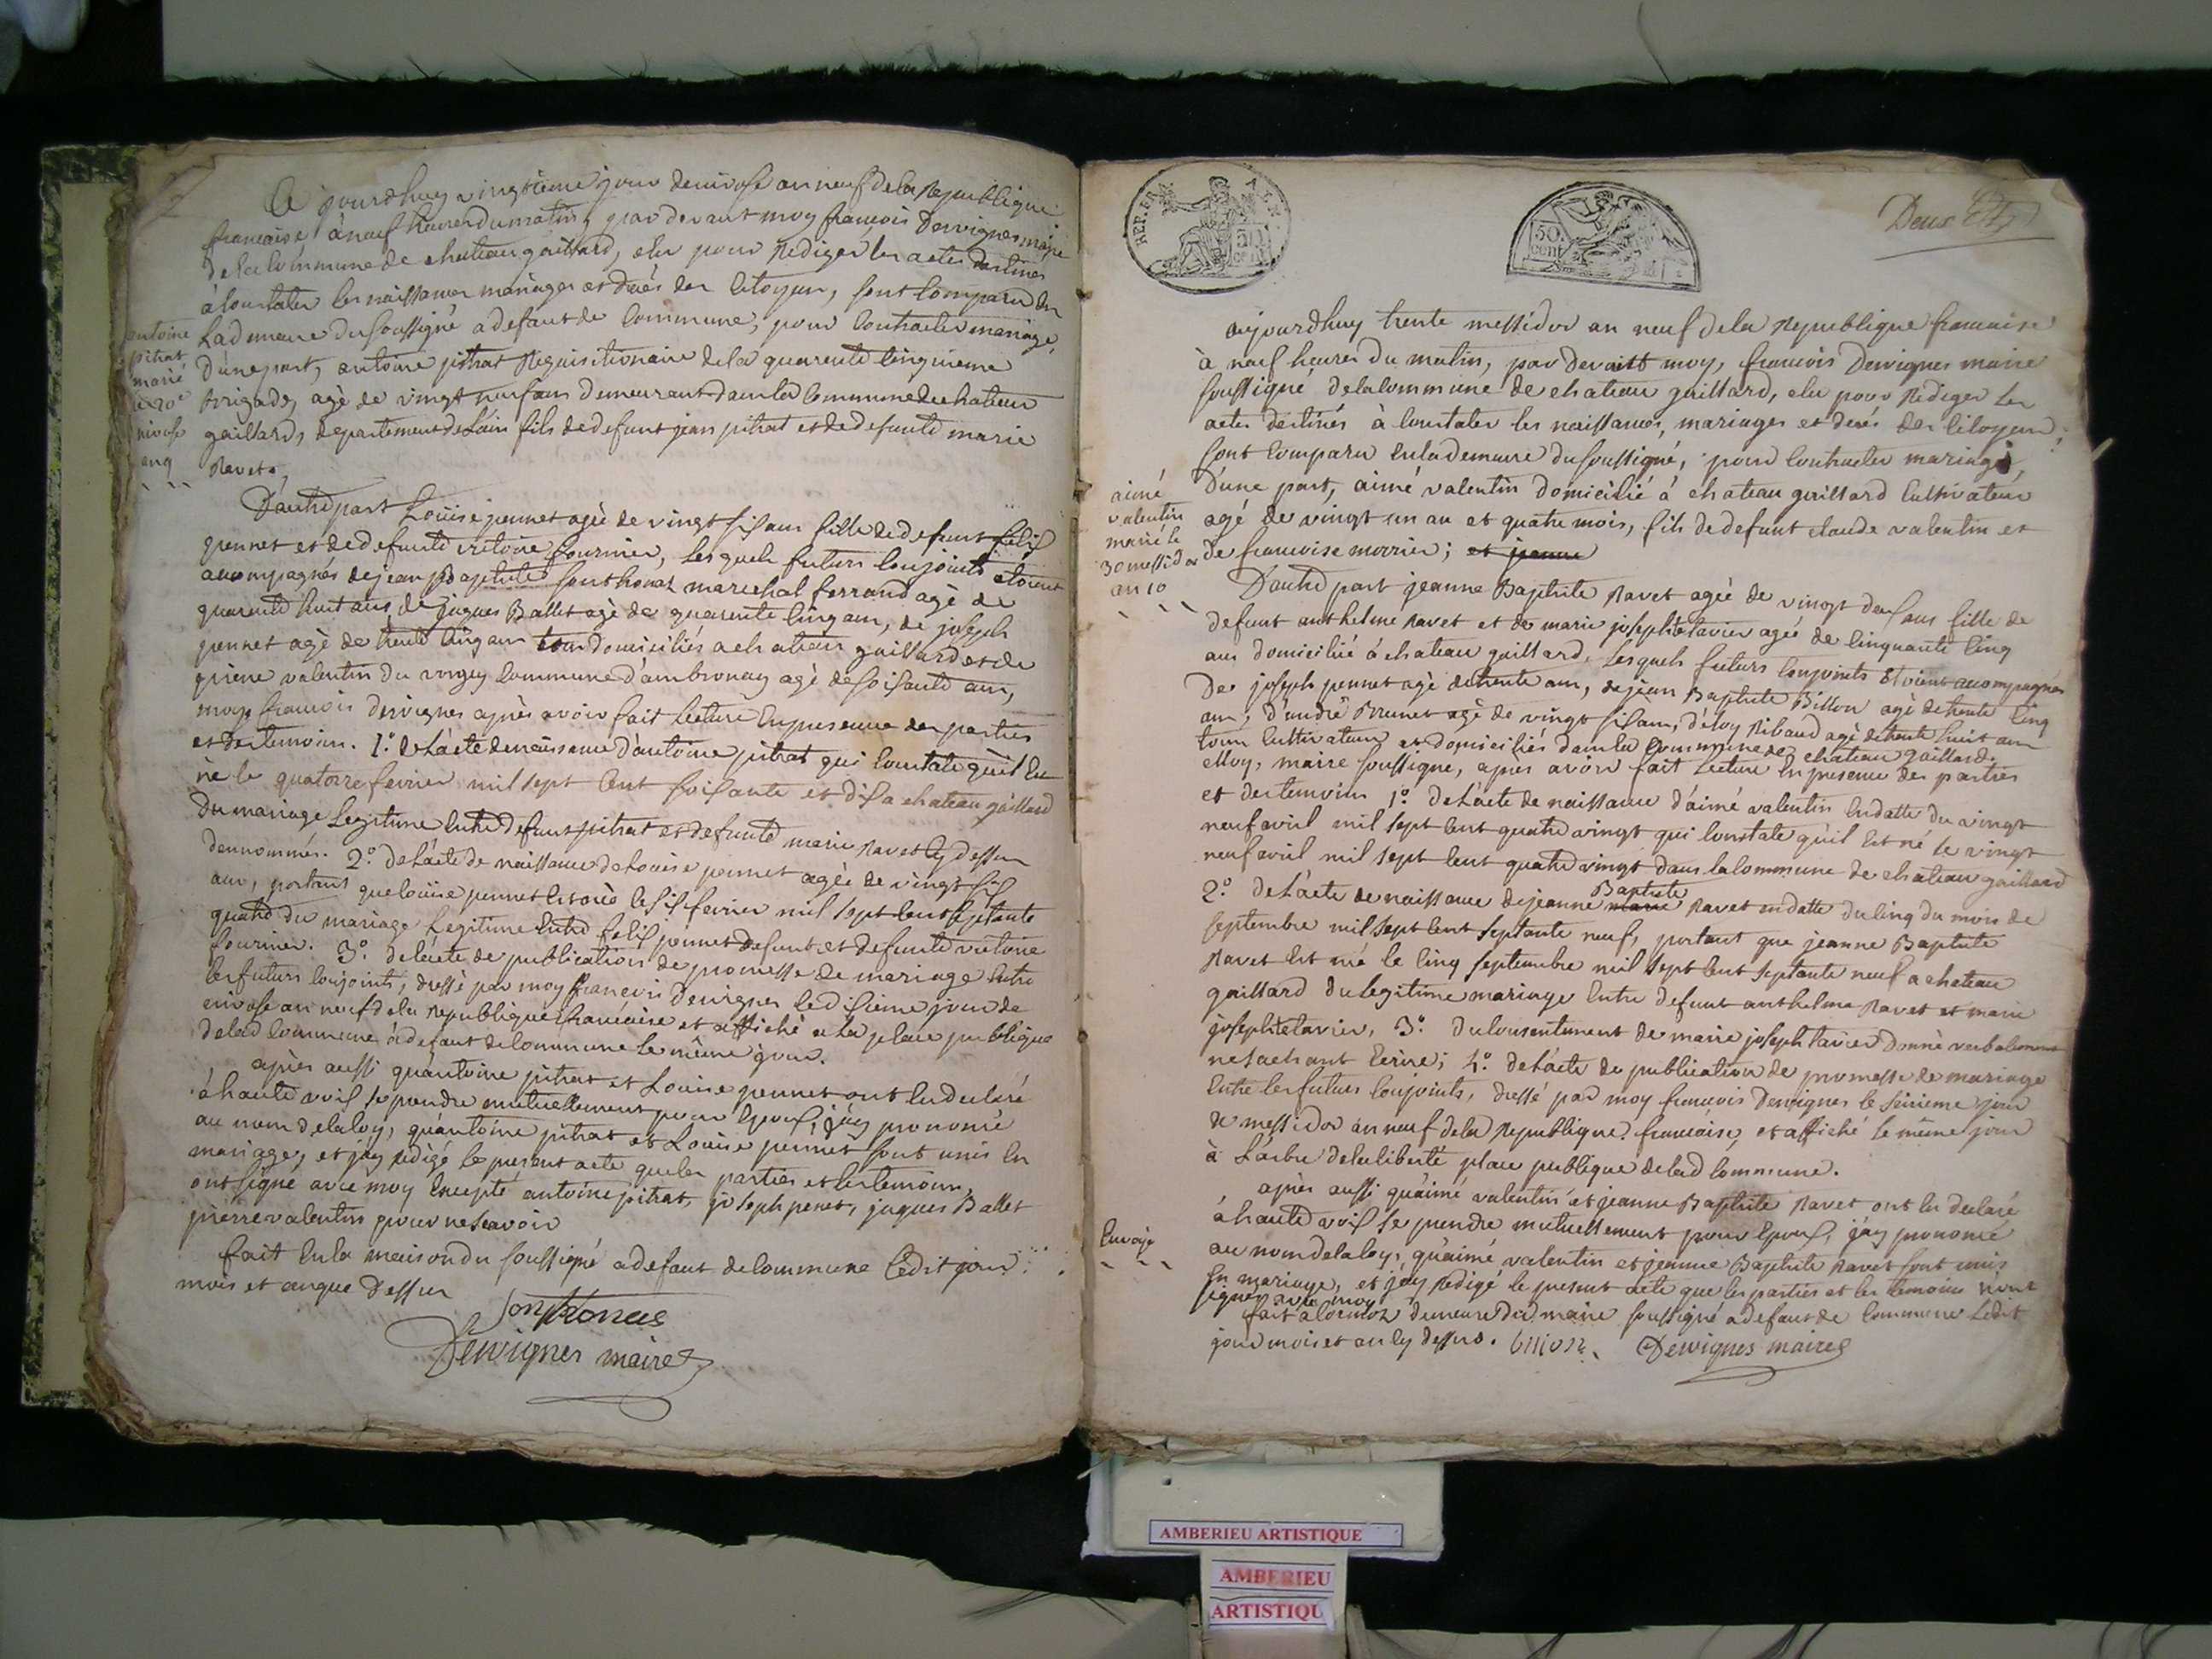 Aujourdhuy vingtieme jour de nivose an neuf de la Republique
francaise à neuf heures du matin, par devant moy francois Dervignes maire
de la Commune de chateau gaillard, elu pour Rediger les actes destinés
à Constater les naissances mariages et decés des Citoyens, sont Comparu en
Lademeure du soussigné a defaut de Commune, pour Contracter mariage,
D'une part, antoine pitrat Requisitionaire de la quarente Cinquieme
Brigade, agé de vingt neuf ans demeurant dans la Commune de chateau
gaillard, departement de Lain fils de defunt jean pitrat et de defunte marie
Ravet.
antoine
pitrat
marié
le 20e
nivose
an 9
D'autre part Louise pennet agée de vingt six ans fille de defunt felix
pennet et de defunte victoire fournier, Lesquels futurs Conjoints etoient
accompagnés de jean Baptiste sonthonas marechal ferrand agé de
quarente huit ans de jaques Ballet agé de quarente Cinq ans, de joseph
pennet agé de trente Cinq ans tous domiciliés a chateau gaillard et de
pierre valentin du vorgey Commune d'ambronay agé de soisante ans,
moy francois dervignes après avoir fait Lecture En presence des parties
et des temoins. 1.° de L'acte de naissance d'antoine pitrat qui Constate qu'il Est
né le quatorze fevrier mil sept Cent soisante et dix a chateau gaillard
du mariage Legitime Entre defunt pitrat et defunte marie Ravet Cy dessus
dennommés. 2.° de L'acte de naissance de Louise pennet agée de vingt six
ans, portant que Louise pennet Est née le six fevrier mil sept Cent septante
quatre du mariage Legitime Entre felix pennet defunt et defunte victoire
fournier. 3.° de L'acte de publication de promesse de mariage Entre
les futurs Conjoints, dressé par moy francois dervignes le dixieme jour de
nivose an neuf de la Republique francaise et affiché a La place publique
de lad Commune à defaut de Commune le même jour.
après aussi qu'antoine pitrat et Louise pennet ont Eu declaré
à haute voix se prendre mutuellement pour Epoux, j'ay prononcé
au nom de la loy, qu'antoine pitrat et Louise pennet sont unis En
mariage, et j'ay redigé le present acte que les parties et les temoins
ont signé avec moy Excepté antoine pitrat, joseph penet, jaques Ballet
pierre valentin pour ne scavoir
fait En la maison du soussigné a defaut de Commune Ledit jour
mois et an que Dessus
Sonthonas
Dervignes maire
REP. FRA
50
cent
50.
cent
Deux
aujourdhuy trente messidor an neuf de la Republique francaise
à neuf heures du matin, par devant moy, francois Dervignes maire
soussigné de la Commune de chateau gaillard, elu pour Rediger les
actes destinés à Constater les naissances, mariages et decés des Citoyens,
sont Comparu En la demeure du soussigné, pour Contracter mariage,
D'une part, aimé valentin domicilié à chateau gaillard Cultivateur
agé de vingt un an et quatre mois, fils de defunt claude valentin et
de francoise morrier; et jeanne
aimé
valentin
marié le
30 messidor
an 10
D'autre part jeanne Baptiste Ravet agée de vingt deux ans fille de
defunt anthelme Ravet et de marie josephte tavier agée de Cinquante Cinq
ans domicilié à chateau gaillard, Lesquels futurs Conjoints Etoient accompagnés
de joseph pennet agé de trente ans, de jean Baptiste Billon agé de trente Cinq
ans, d'andré Brunet agé de vingt six ans, d'eloy Ribaud agé de trente huit ans
tous Cultivateurs et domiciliés dans la Commune de chateau gaillard.
et Moy, maire soussigné, après avoir fait Lecture En presence des parties
et des temoins 1.° de L'acte de naissance d'aimé valentin En datte du vingt
neuf avril mil sept Cent quatre vingt qui Constate qu'il Est né le vingt
neuf avril mil sept Cent quatre vingt dans la Commune de chateau gaillard
2.° de L'acte de naissance de jeanne marie Baptiste Ravet en datte du Cinq du mois de
septembre mil sept Cent septante neuf, portant que jeanne Baptiste
Ravet Est née le Cinq septembre mil sept Cent septante neuf a chateau
gaillard du legitime mariage Entre defunt anthelme Ravet et marie
josephte tavier, 3.° du Consentement de marie joseph tavier donné verbalement
ne sachant Ecrire; 4.° de L'acte de publication de promesse de mariage
Entre les futurs Conjoints, dressé par moy francois dervignes le seizieme jour
de messidor an neuf de la Republique francaise, et affiché le même jour
à L'arbre de la liberté place publique de lad Commune.
après aussi qu'aimé valentin et jeanne Baptiste Ravet ont Eu declaré
à haute voix se prendre mutuellement pour Epoux, j'ay prononcé
au nom de la loy, qu'aimé valentin et jeanne Baptiste Ravet sont unis
En mariage, et j'ay redigé le present acte que les parties et les temoins n'ont
signé avec moy
fait a demeure du maire soussigné a defaut de Commune Ledit
jour mois et an Cy dessus. billion Dervignes maire
Envoyé
AMBERIEU ARTISTIQUE
AMBERIEU
ARTISTIQU